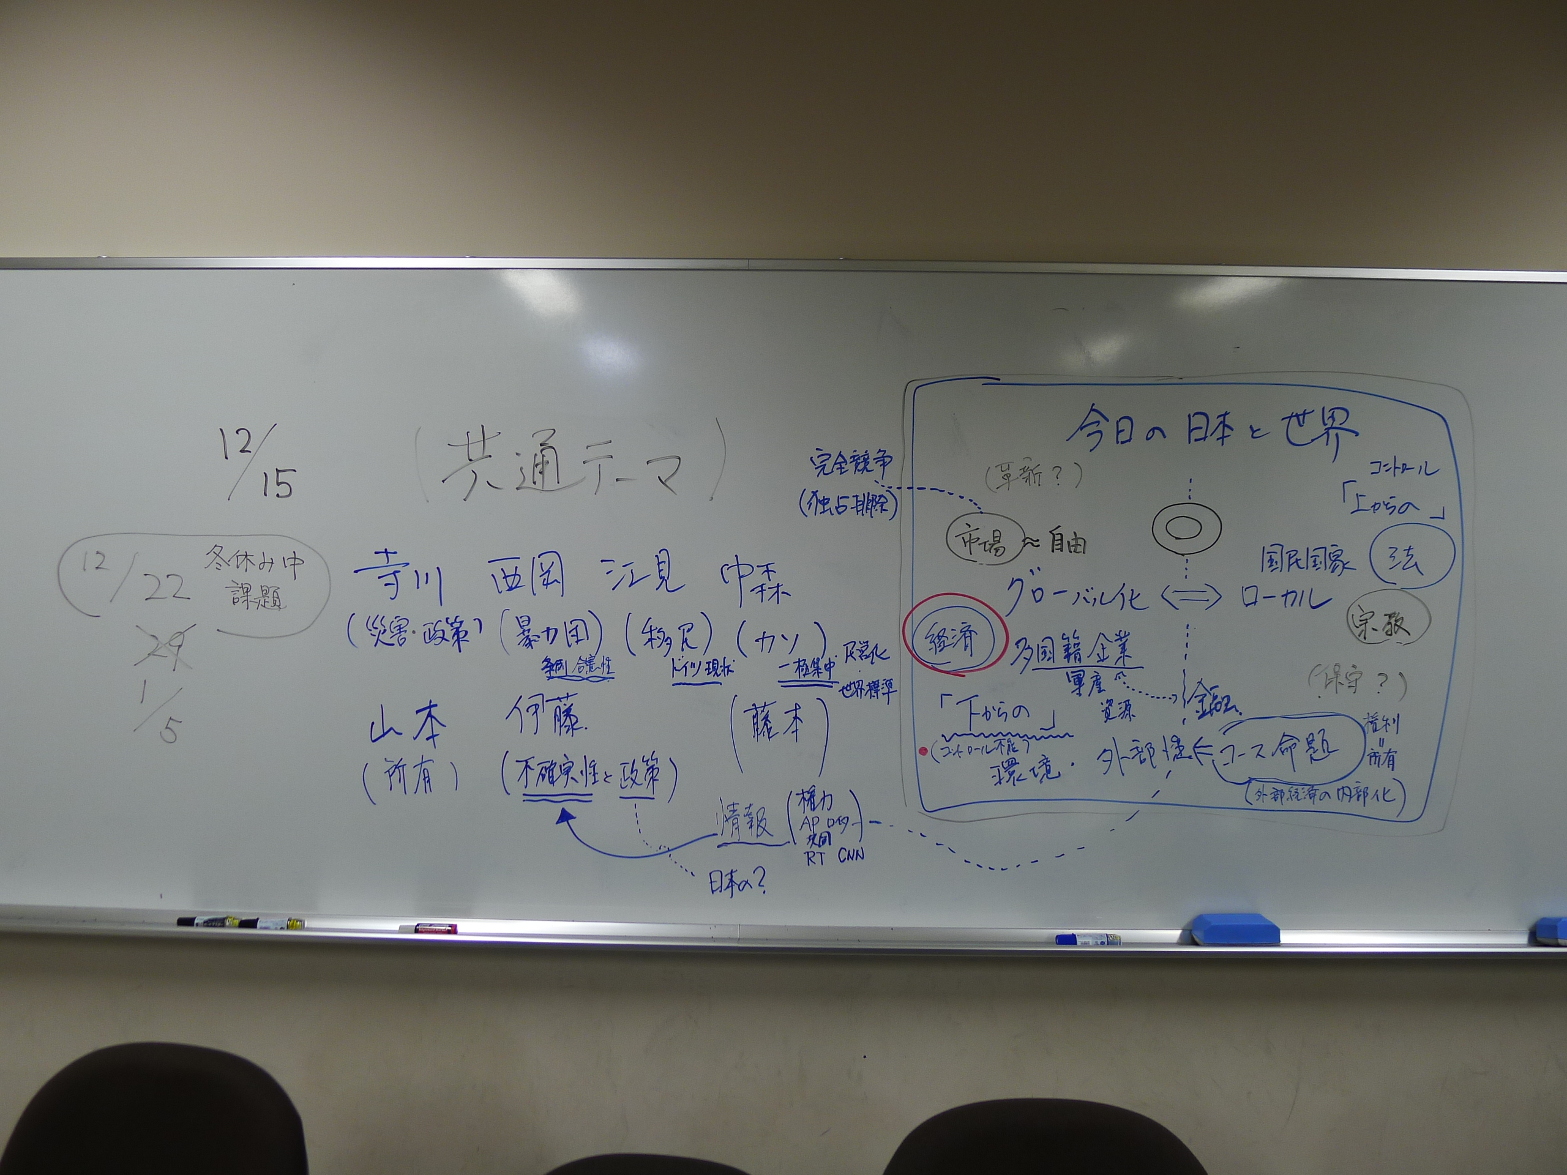 12/15
(共通テーマ)
12/22 冬休み中
課題
29
1/5
寺川 西岡 江見 中森
(災害・政策) (暴力団) (移民) (カソ)
条例 合憲性 ドイツ現状 一極集中 民営化
世界標準
山本 伊藤 (藤本)
(所有) (不確実性と政策)
情報 (権力
AP ロイター)
共同
RT CNN
日本の?
完全競争
(独占排除)
今日の日本と世界
(革新?)
コントロール
「上からの」
市場 ≈ 自由
国民国家 法
グローバル化 ⇔ ローカル
宗教
経済 多国籍企業
軍産
資源
金融
(保守?)
「下からの」
(コントロール不能)
環境・外部性 ⇐ コース命題
(外部経済の内部化)
権利
=
所有